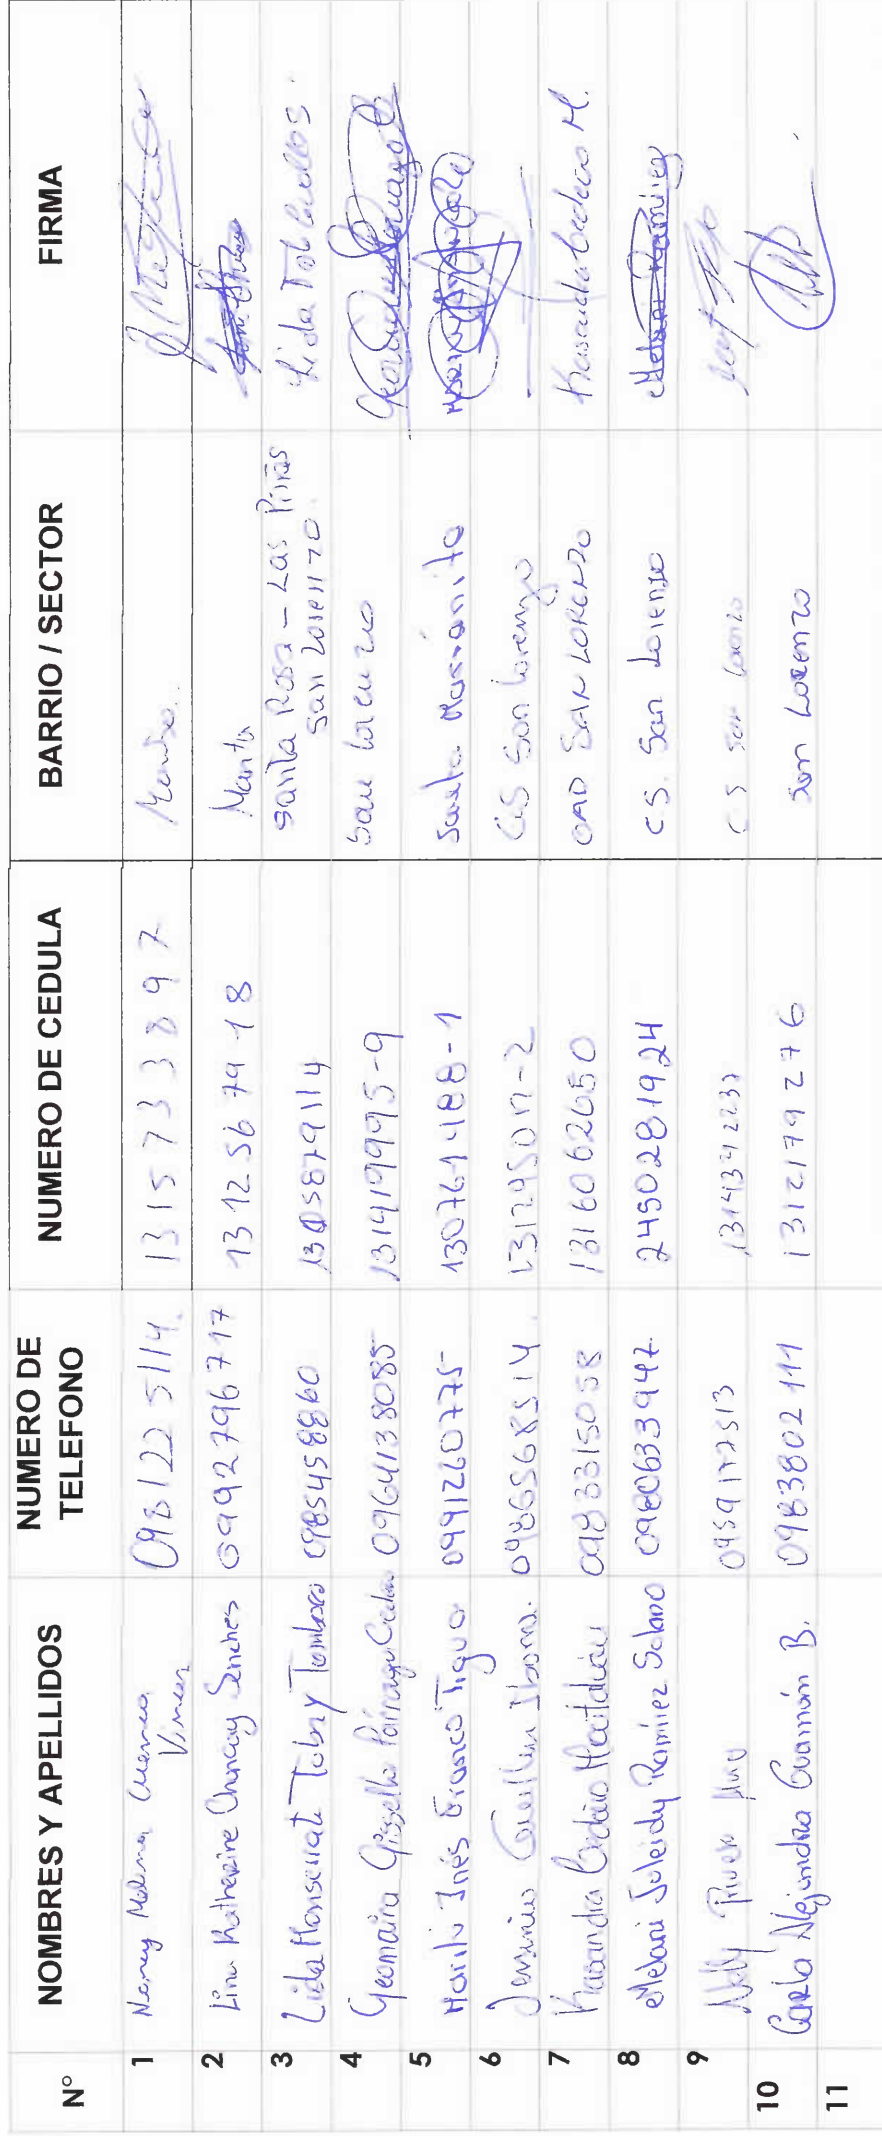 N° NOMBRES Y APELLIDOS NUMERO DE TELEFONO NUMERO DE CEDULA BARRIO / SECTOR FIRMA
1 Nancy Cuenca 098122 5114 1315733897
2 Lina Katherine Chancay Sanches 0992796717 1312567918 Manta
3 Lida Monserrate Toby 0985458860 1305879114 Santa Rosa - Las Piñas San Lorenzo Lida
4 Geomaira Gisselle Párraga 0964138085 131919995-9 San Lorenzo
5 Marilú Inés Franco Tigua 0991260775 130761488-1 Santa Marianita
6 0986568514 C.S San Lorenzo
7 Kasandra 0983315058 1316062650 GAD SAN LORENZO
8 Melani Juleidy Ramírez Solano 0980633947 2450281924 C.S. San Lorenzo Melani Ramírez
9 Nelly 1314342237 C S San Lorenzo
10 Carla Alejandra Guamán B. 0983802111 1312179276 San Lorenzo
11